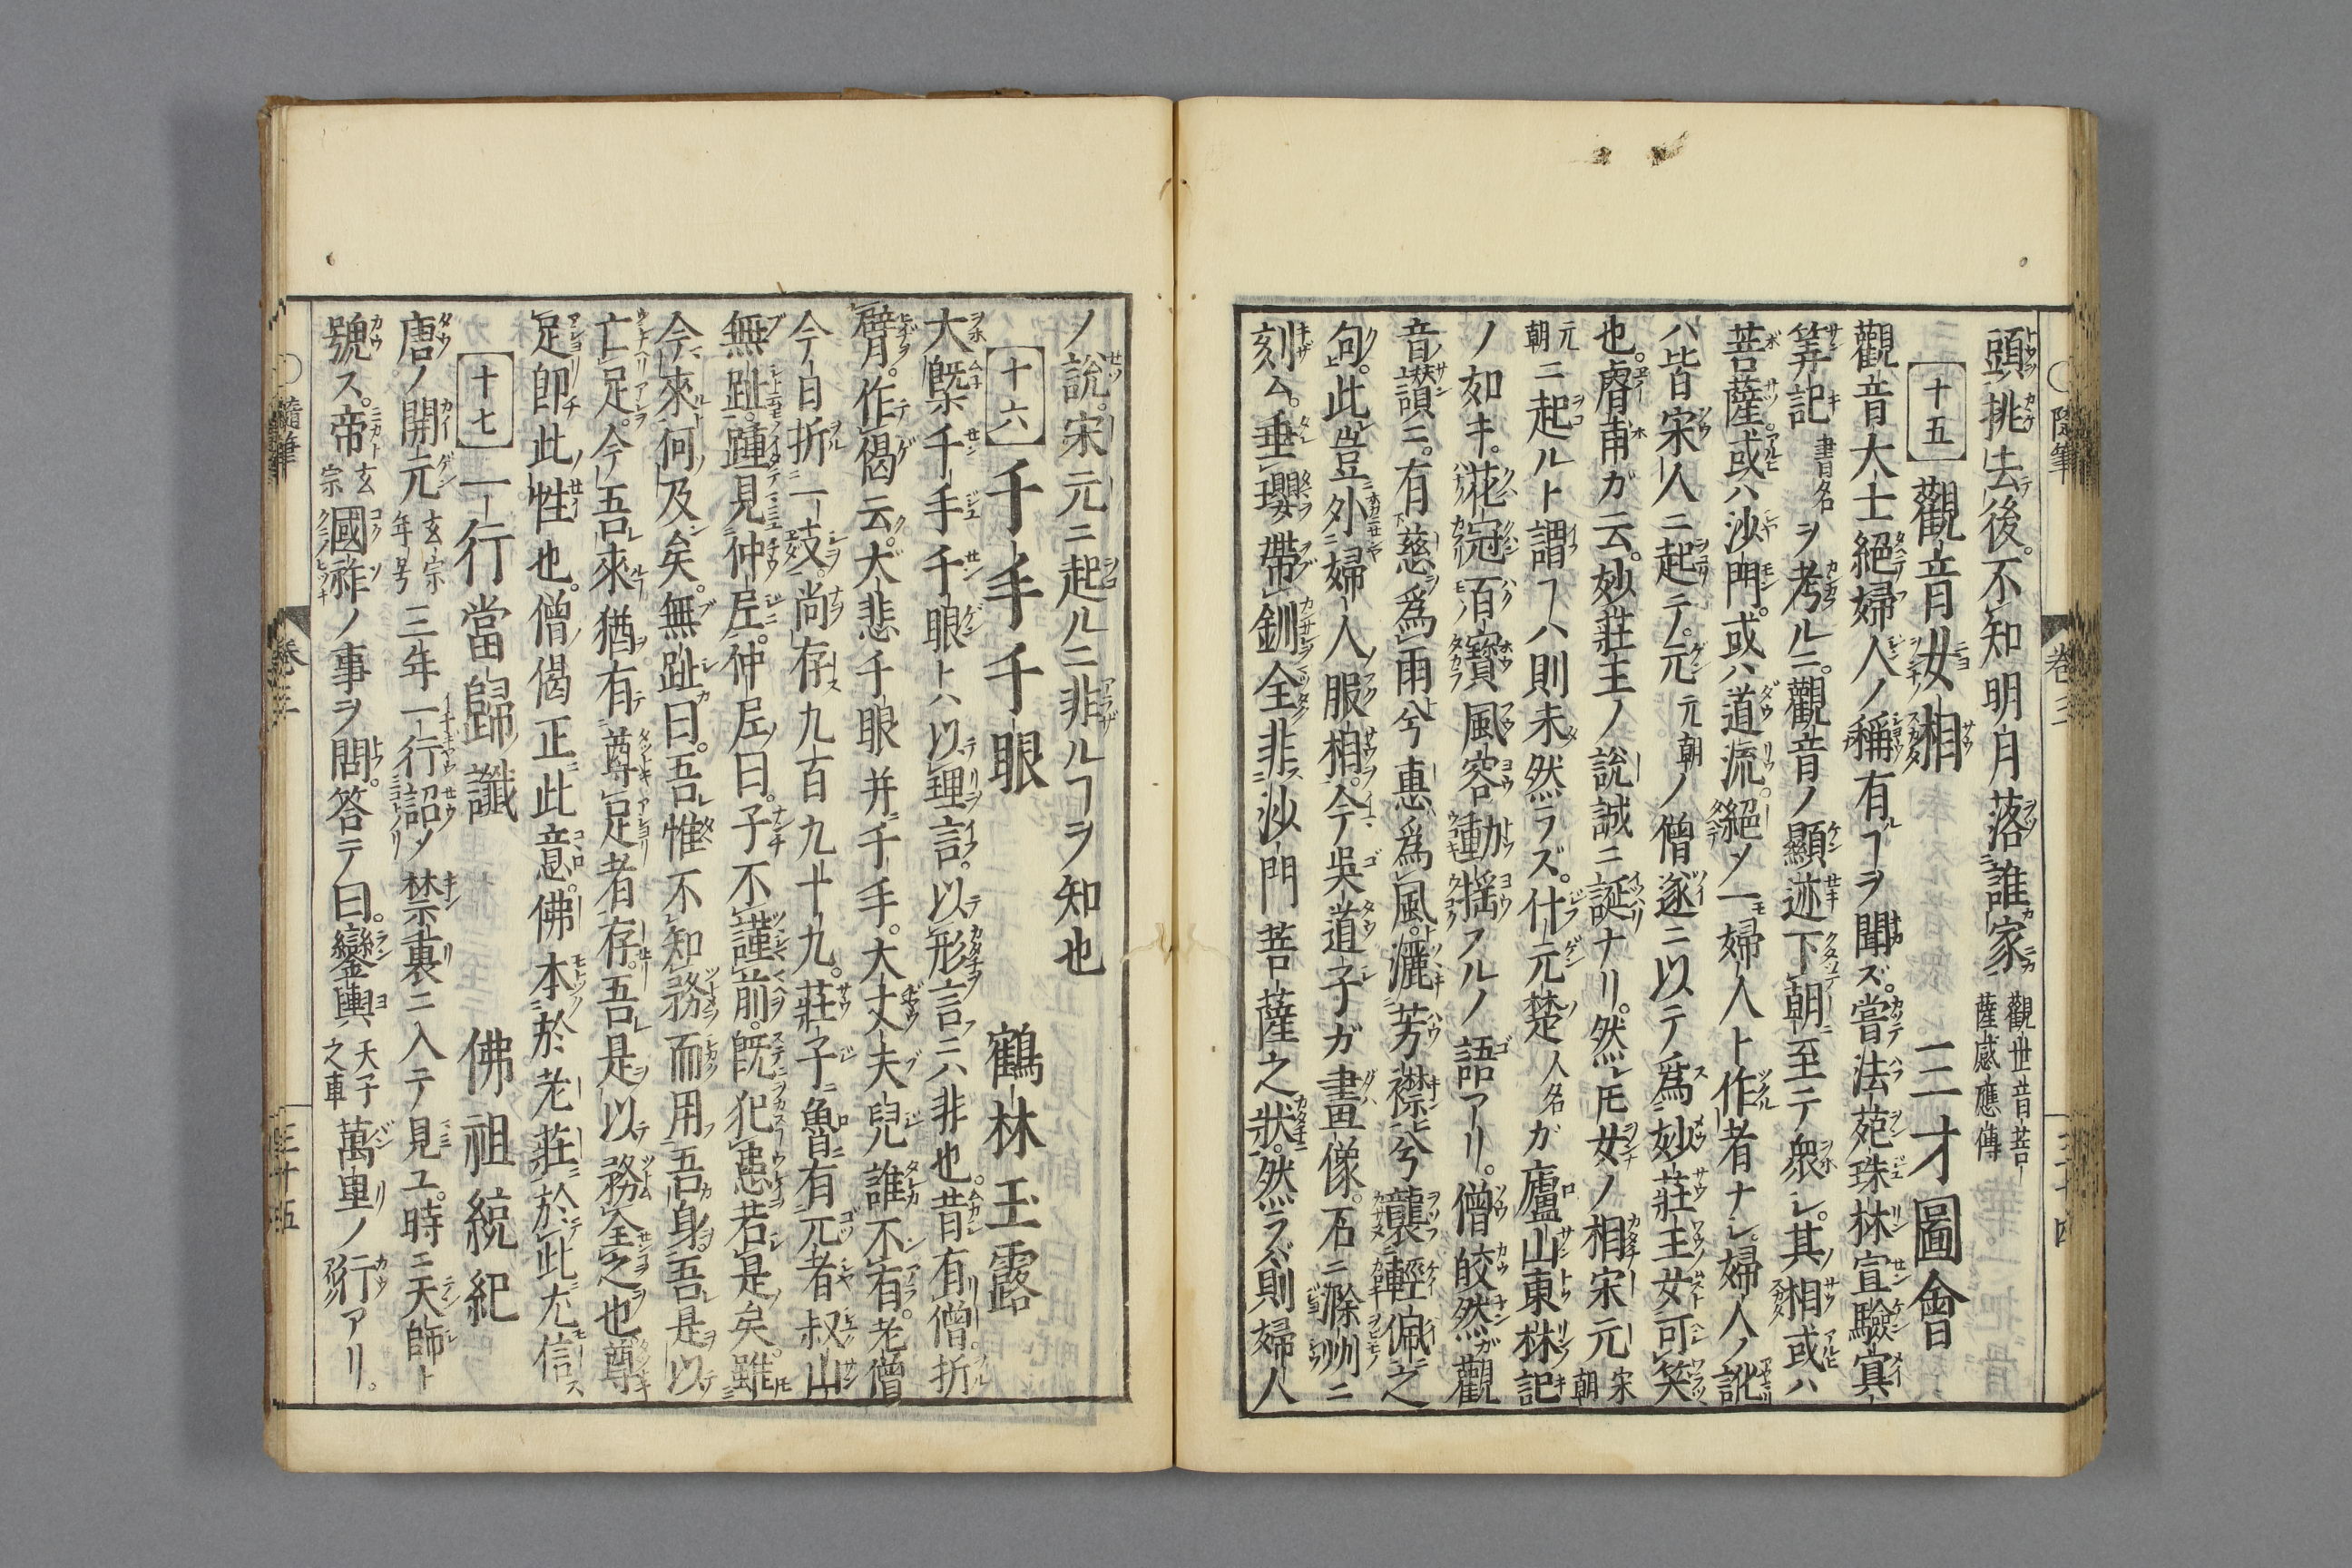 頭挑去後。不知明月落誰家 觀世音菩薩感應傳
十五 觀音女相 三才圖會
觀音大士絕婦人ノ稱有ヿヲ聞ズ。嘗法苑珠林宣驗冥
筭記 書名 ヲ考ルニ。觀音ノ顯迹下朝至テ衆シ。其相或ハ
菩薩或ハ沙門。或ハ道流。絕メ一婦人ト作者ナシ。婦人ノ訛
ハ皆宋人ニ起テ。元 元朝 ノ僧遂ニ以テ爲妙莊主女可笑
也。胥甫ガ云。妙莊主ノ說誠ニ誕ナリ。然レ𪜈女ノ相宋元 宋朝
元朝 ニ起ルト謂ヿハ則未然ラズ。什元楚 人名 ガ廬山東林記
ノ如キ。花冠百寶風容動揺アルノ語アリ。僧皎然ガ觀
音讃ニ。有慈爲雨兮惠爲風。灑芳襟兮襲輕佩之
句。此豈外婦人服相。今吳道子ガ畫像。石ニ滁州ニ
刻ム。垂瓔帶釧全非沙門菩薩之狀。然ラバ則婦人
隨筆 卷三 三十四
ノ說。宋元ニ起ルニ非ルヿヲ知也
十六 千手千眼 鶴林玉露
大槩千手千眼トハ以理言。以形言ニハ非也。昔有僧。折
臂。作偈云。大悲千眼并千手。大丈夫兒誰不有。老僧
今日折一支。尚存九百九十九。莊子ニ魯有兀者叔山
無趾。踵見仲尼。仲尼曰。子不謹前。既犯患若是矣。雖
今來何及矣。無趾曰。吾惟不知務而用吾身。吾是以
亡足。今吾來猶有尊足者存。吾是以務全之也。尊
足卽此性也。僧偈正此意。佛本於老莊於此尤信
十七 一行當歸讖 佛祖統紀
唐ノ開元 玄宗年号 三年一行詔メ禁裏ニ入テ見ユ。時ニ天師ト
號ス。帝 玄宗 國祚ノ事ヲ問。答テ曰。鑾輿 天子之車 萬里ノ行アリ。
隨筆 卷三 三十五